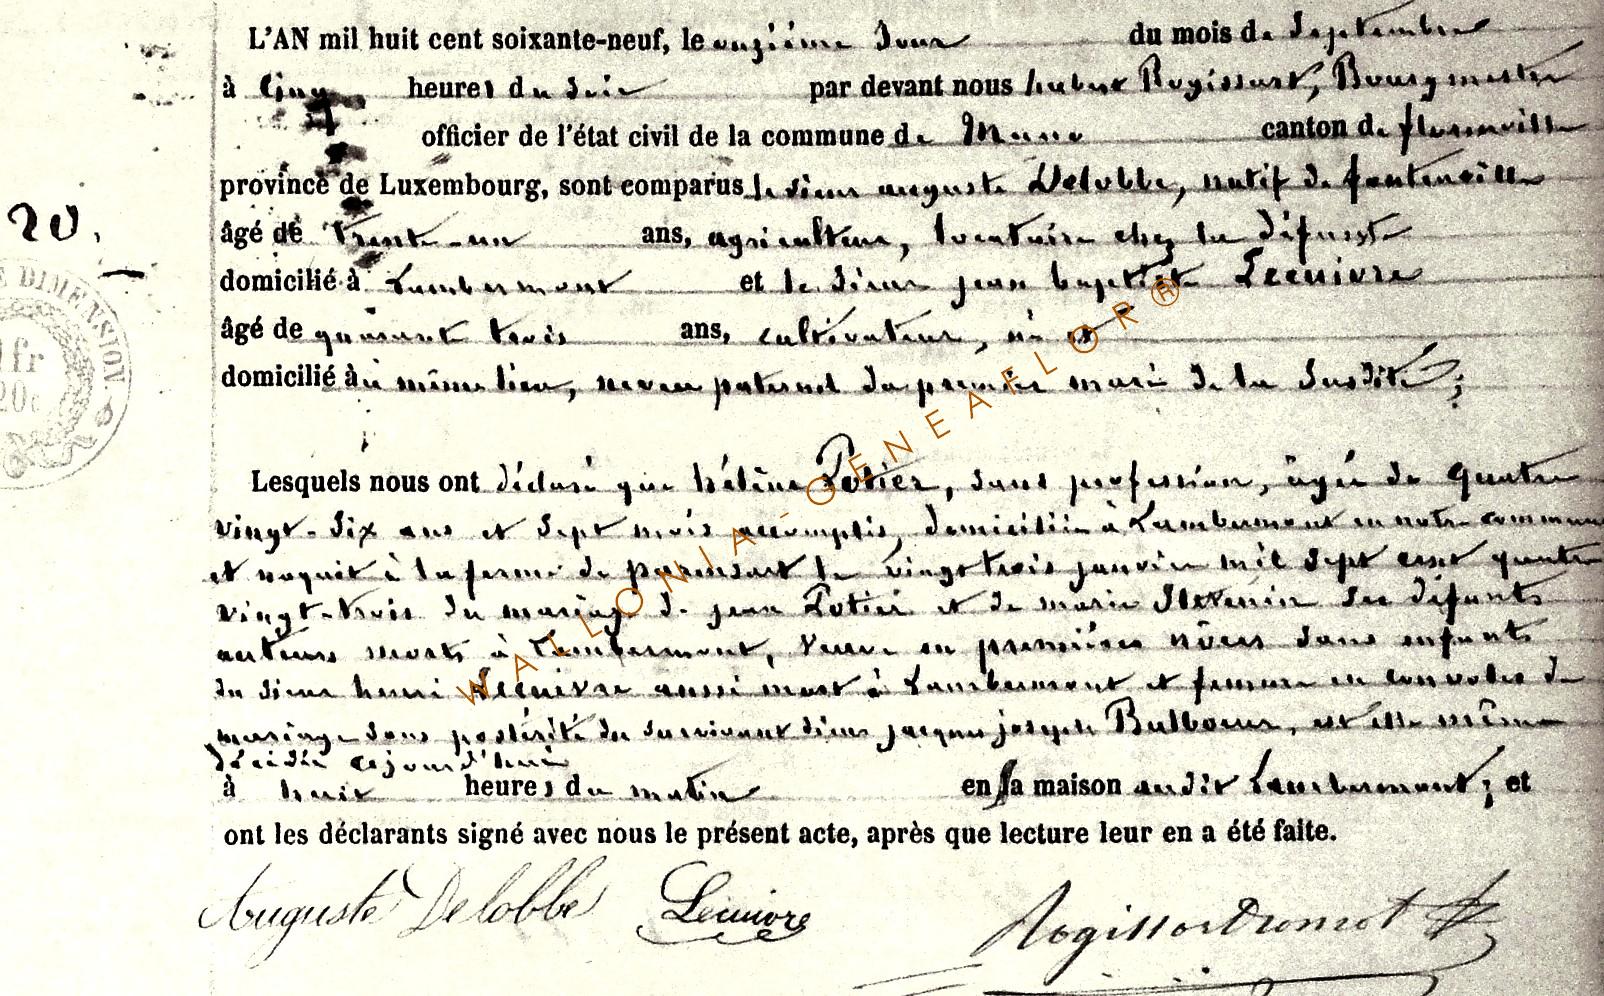 L'AN mil huit cent soixante-neuf, le onzième Jour du mois de Septembre
à Cinq heures du Soir par devant nous hubert Rogissart, Bourgmestre
officier de l'état civil de la commune de Muno canton de florenville
province de Luxembourg, sont comparus le sieur auguste Delobbe, natif de fontenoille
20.
âgé de trente-un ans, agriculteur, locataire chez la défunte
domicilié à Lambermont et le sieur jean baptiste Lecuivre
âgé de quarante trois ans, cultivateur, né et
domicilié au même lieu, neveu paternel du premier mari de la Susdite;
DIMENSION
1 fr
20c
Lesquels nous ont déclaré que hélène Potier, sans profession, âgée de quatre
vingt-six ans et sept mois accomplis, domiciliée à Lambermont en notre commune
et naquit à la ferme de parensart le vingt trois janvier mil sept cent quatre
vingt-trois du mariage de jean Potier et de marie Stevenin ses défunts
auteurs morts à Lambermont, veuve en premières nôces sans enfants
du sieur henri Lecuivre aussi mort à Lambermont et femme en convoles de
mariage sans postérité du survivant sieur jacques joseph Balboeur, est elle même
décédée cejourd'hui
à huit heures du matin en sa maison audit Lambermont; et
ont les déclarants signé avec nous le présent acte, après que lecture leur en a été faite.
Auguste Delobbe Lecuivre Rogissart
WALLONIA-GENEAFLOR®